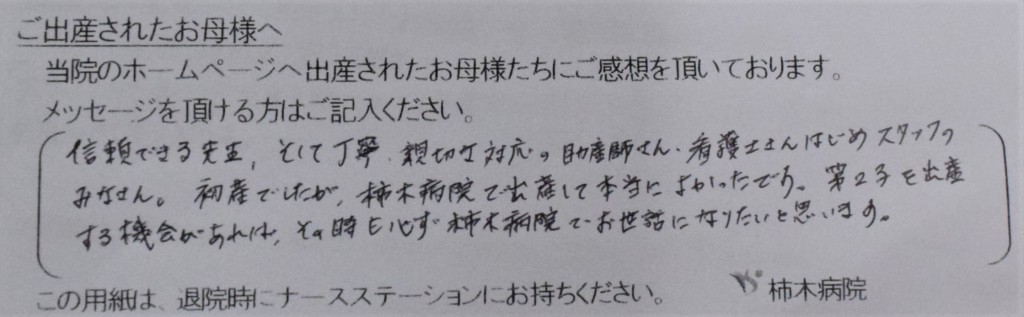 ご出産されたお母様へ
当院のホームページへ出産されたお母様たちにご感想を頂いております。
メッセージを頂ける方はご記入ください。
信頼できる先生、そして丁寧、親切な対応の助産師さん・看護士さんはじめスタッフの
みなさん。初産でしたが、柿木病院で出産して本当によかったです。第2子を出産
する機会があれば、その時も必ず柿木病院でお世話になりたいと思います。
この用紙は、退院時にナースステーションにお持ちください。
柿木病院